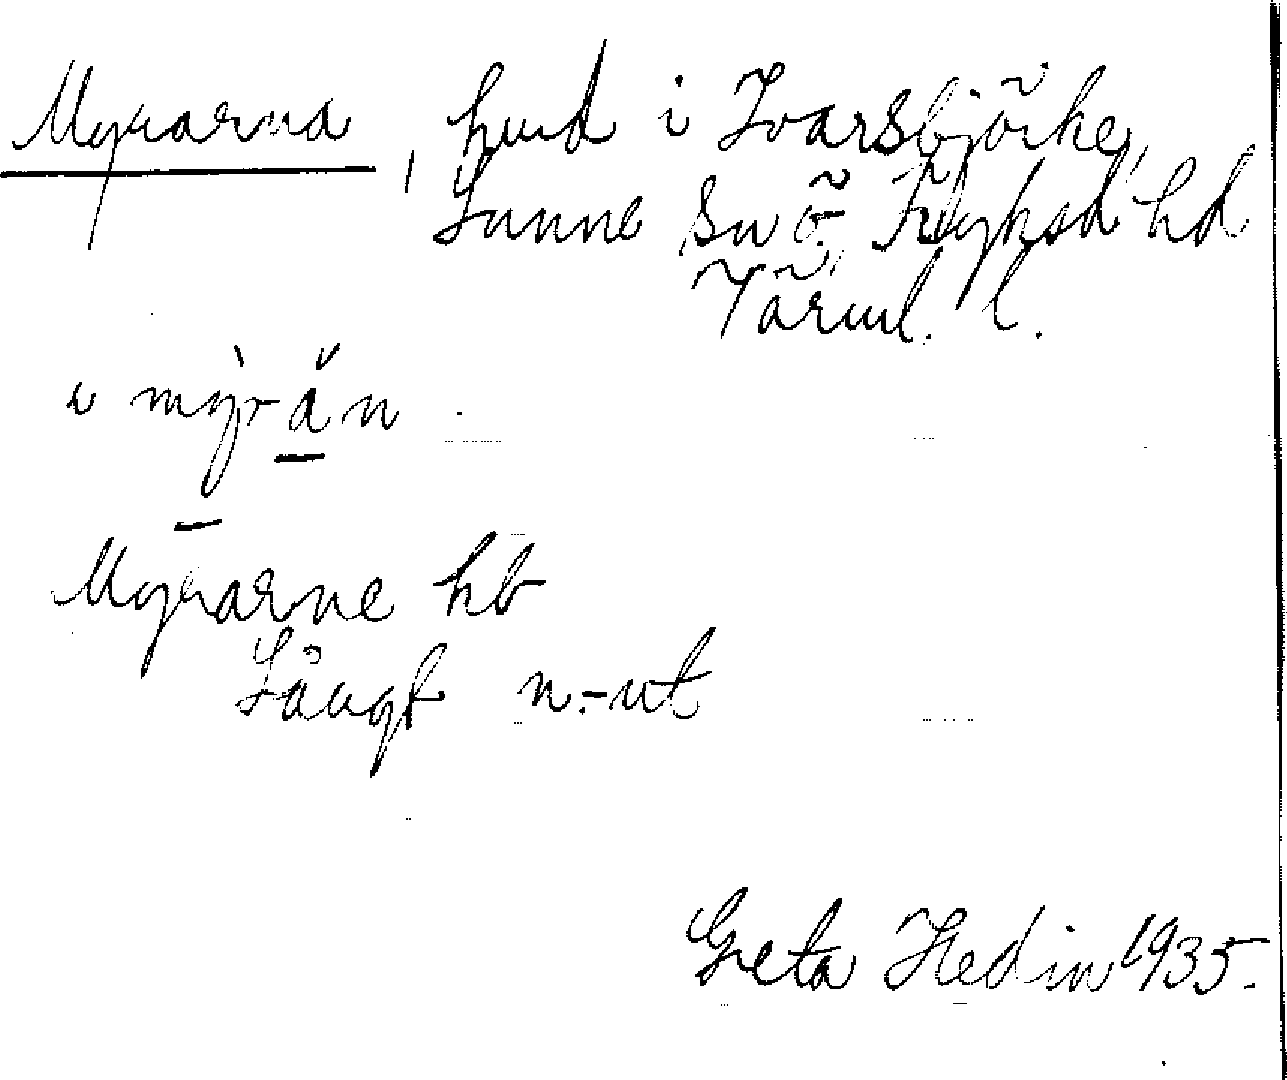 Myrarna, hmd i Ivarsbjörke,
Sunne sn Ö. Fryksd. hd
Värml. l.
i mỳrǎn
Myrarne hb
Långt n.-ut
Greta Hedin 1935.